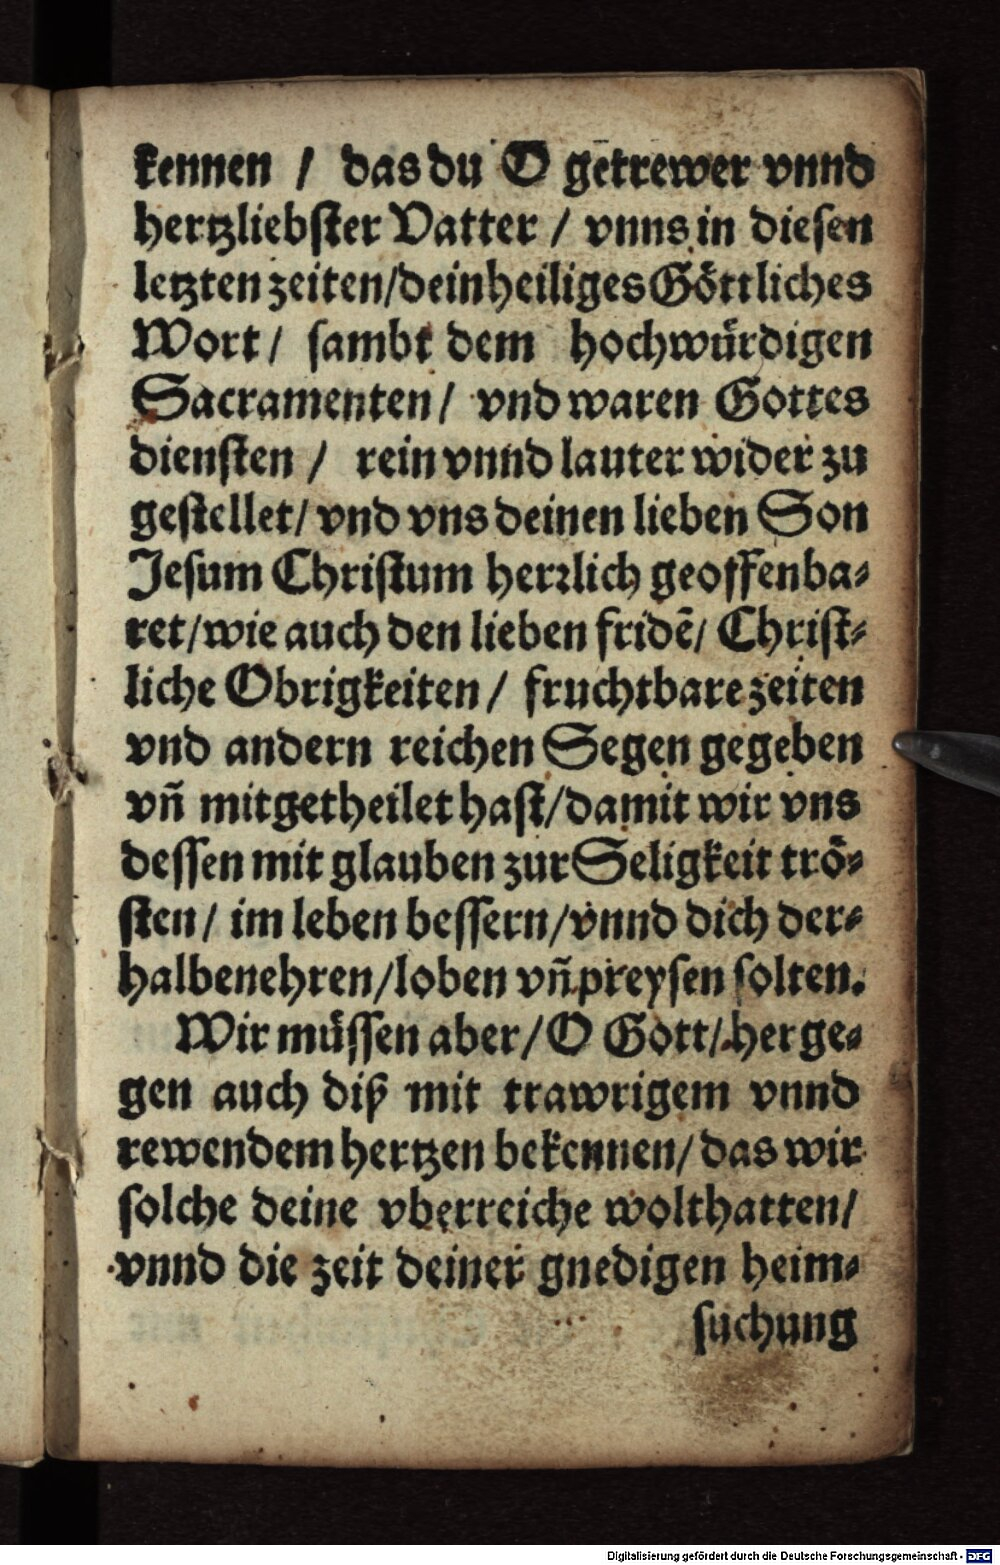 kennen / das du O getrewer vnnd
hertzliebster Vatter / vnns in diesen
letzten zeiten/dein heiliges Göttliches
Wort / sambt dem hochwürdigen
Sacramenten / vnd waren Gottes
diensten / rein vnnd lauter wider zu
gestellet/ vnd vns deinen lieben Son
Jesum Christum herrlich geoffenba-
ret/wie auch den lieben fridē/ Christ-
liche Obrigkeiten / fruchtbare zeiten
vnd andern reichen Segen gegeben
vñ mitgetheilet hast/damit wir vns
dessen mit glauben zur Seligkeit trö-
sten/ im leben bessern/vnnd dich der-
halben ehren/loben vñ preysen solten.
Wir müssen aber/O Gott/herge-
gen auch diß mit trawrigem vnnd
rewendem hertzen bekennen/das wir
solche deine vberreiche wolthatten/
vnnd die zeit deiner gnedigen heim-
suchung
Digitalisierung gefördert durch die Deutsche Forschungsgemeinschaft - DFG